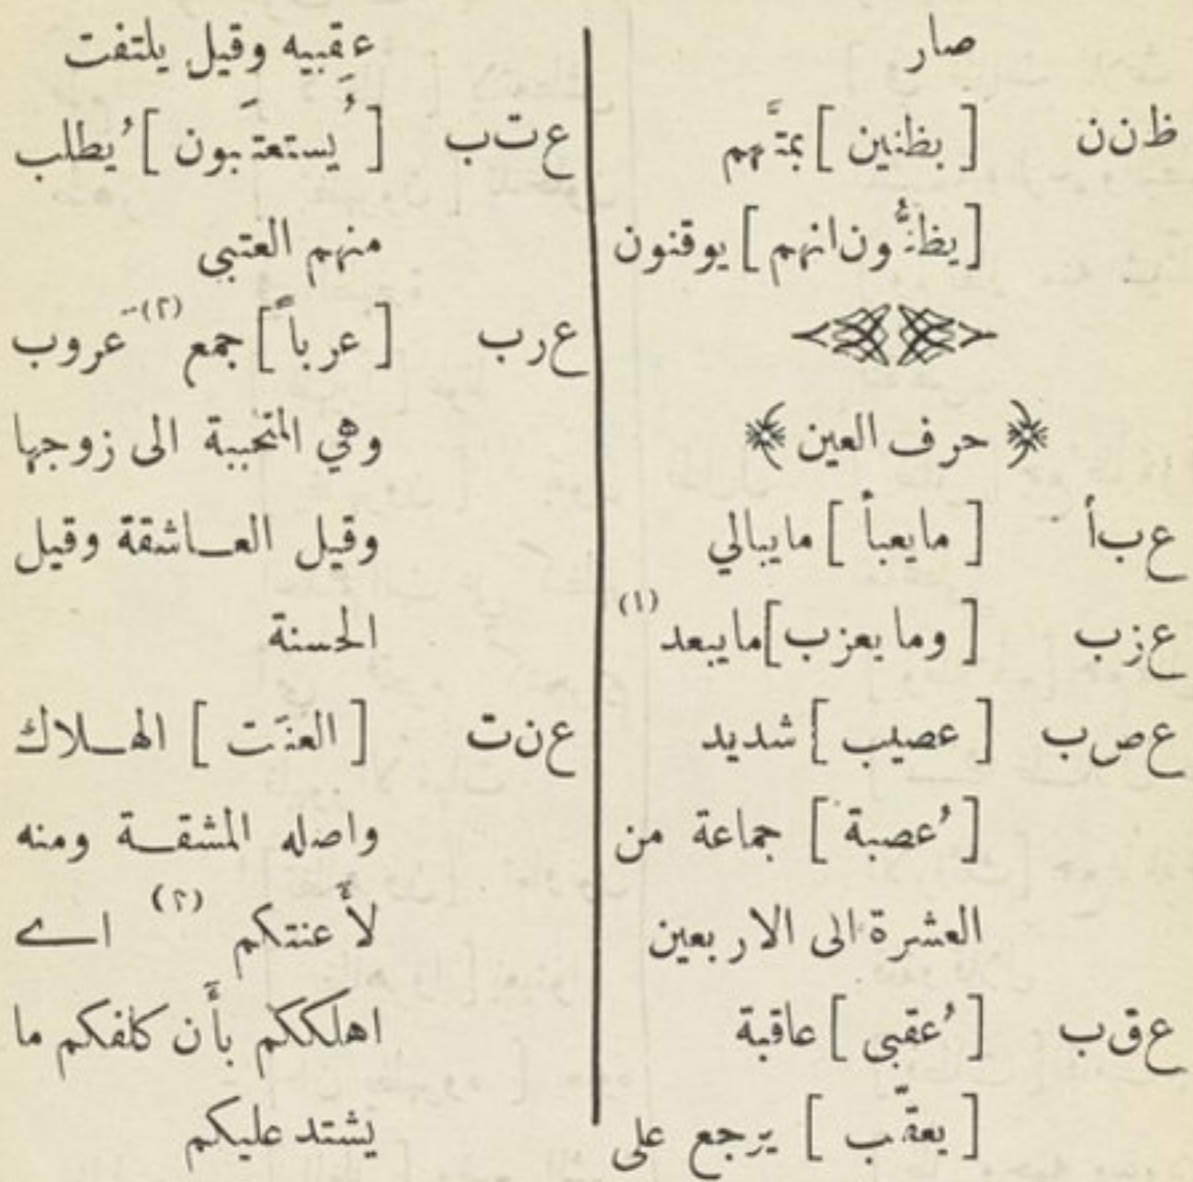 صار
ظ ن ن [ بظنين ] بمتَّهم
[يظنُّون انهم ] يوقنون
﴿ حرف العين ﴾
ع ب أ [ مايعبأ ] مايبالي
ع ز ب [ وما يعزب]مايبعد (١)
ع ص ب [ عصيب ] شديد
[ عُصبة ] جماعة من
العشرة الى الاربعين
ع ق ب [ عُقبى ] عاقبة
[ يعقّب ] يرجع على
عقِبيه وقيل يلتفت
ع ت ب [ يُستعتَبون ] يُطلب
منهم العتبى
ع ر ب [ عرباً ] جمع (٢) عَروب
وهي المتحببة الى زوجها
وقيل العـاشقة وقيل
الحسنة
ع ن ت [ العنَت ] الهـلاك
واصله المشقـة ومنه
لأَعنتكم (٢) اے
اهلككم بأَن كلفكم ما
يشتد عليكم